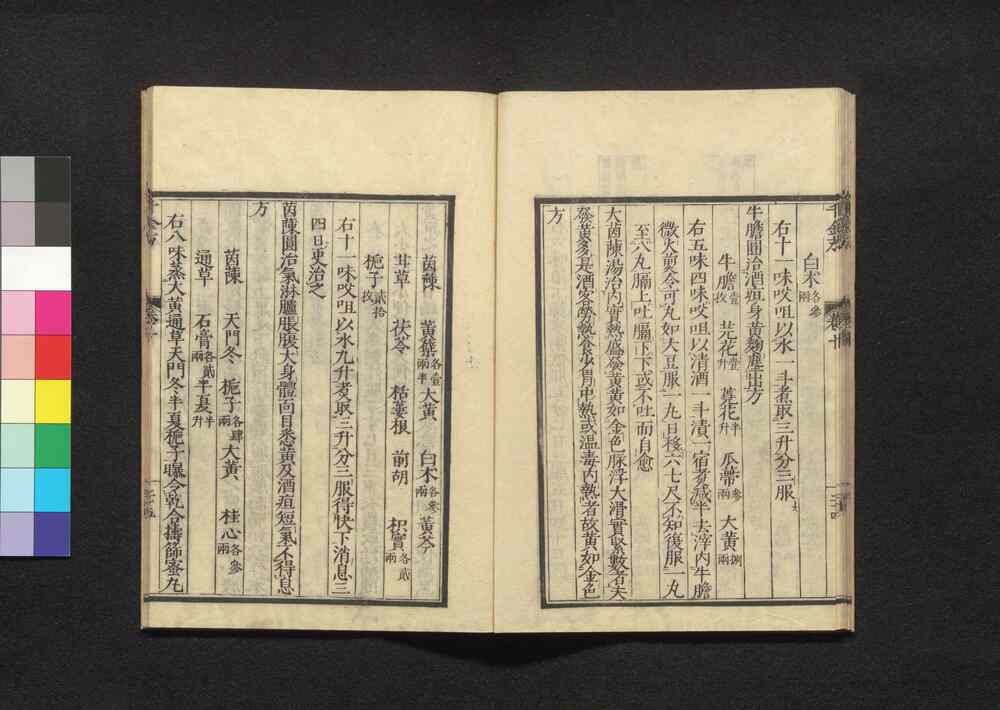 白朮各參兩
右十一味㕮咀以水一斗煮取三升分三服
牛膽圓治酒疸身黃麴塵出方
牛膽壹枚 芫花壹升 蕘花半升 瓜蔕參兩 大黃捌兩
右五味四味㕮咀以清酒一斗漬一宿煮減半去滓內牛膽
微火煎令可丸如大豆服一丸日移六七尺不知復服一丸
至八丸膈上吐膈下下或不吐而自愈
大茵蔯湯治內實熱盛發黃黃如金色脉浮大滑實緊數者夫
發黃多是酒客勞熱食少胃中熱或溫毒內熱者故黃如金色
方
茵蔯 黃蘗各壹兩半 大黃 白朮各參兩 黃芩
甘草 茯苓 栝蔞根 前胡 枳實各貳兩
梔子貳拾枚
右十一味㕮咀以水九升煮取三升分三服得快下消息三
四日更治之
茵蔯圓治氣淋臚脹腹大身體面目悉黃及酒疸短氣不得息
方
茵蔯 天門冬 梔子各肆兩 大黃 桂心各參兩
通草 石膏各貳兩 半夏半升
右八味蒸大黃通草天門冬半夏梔子曝令乾合擣篩蜜丸